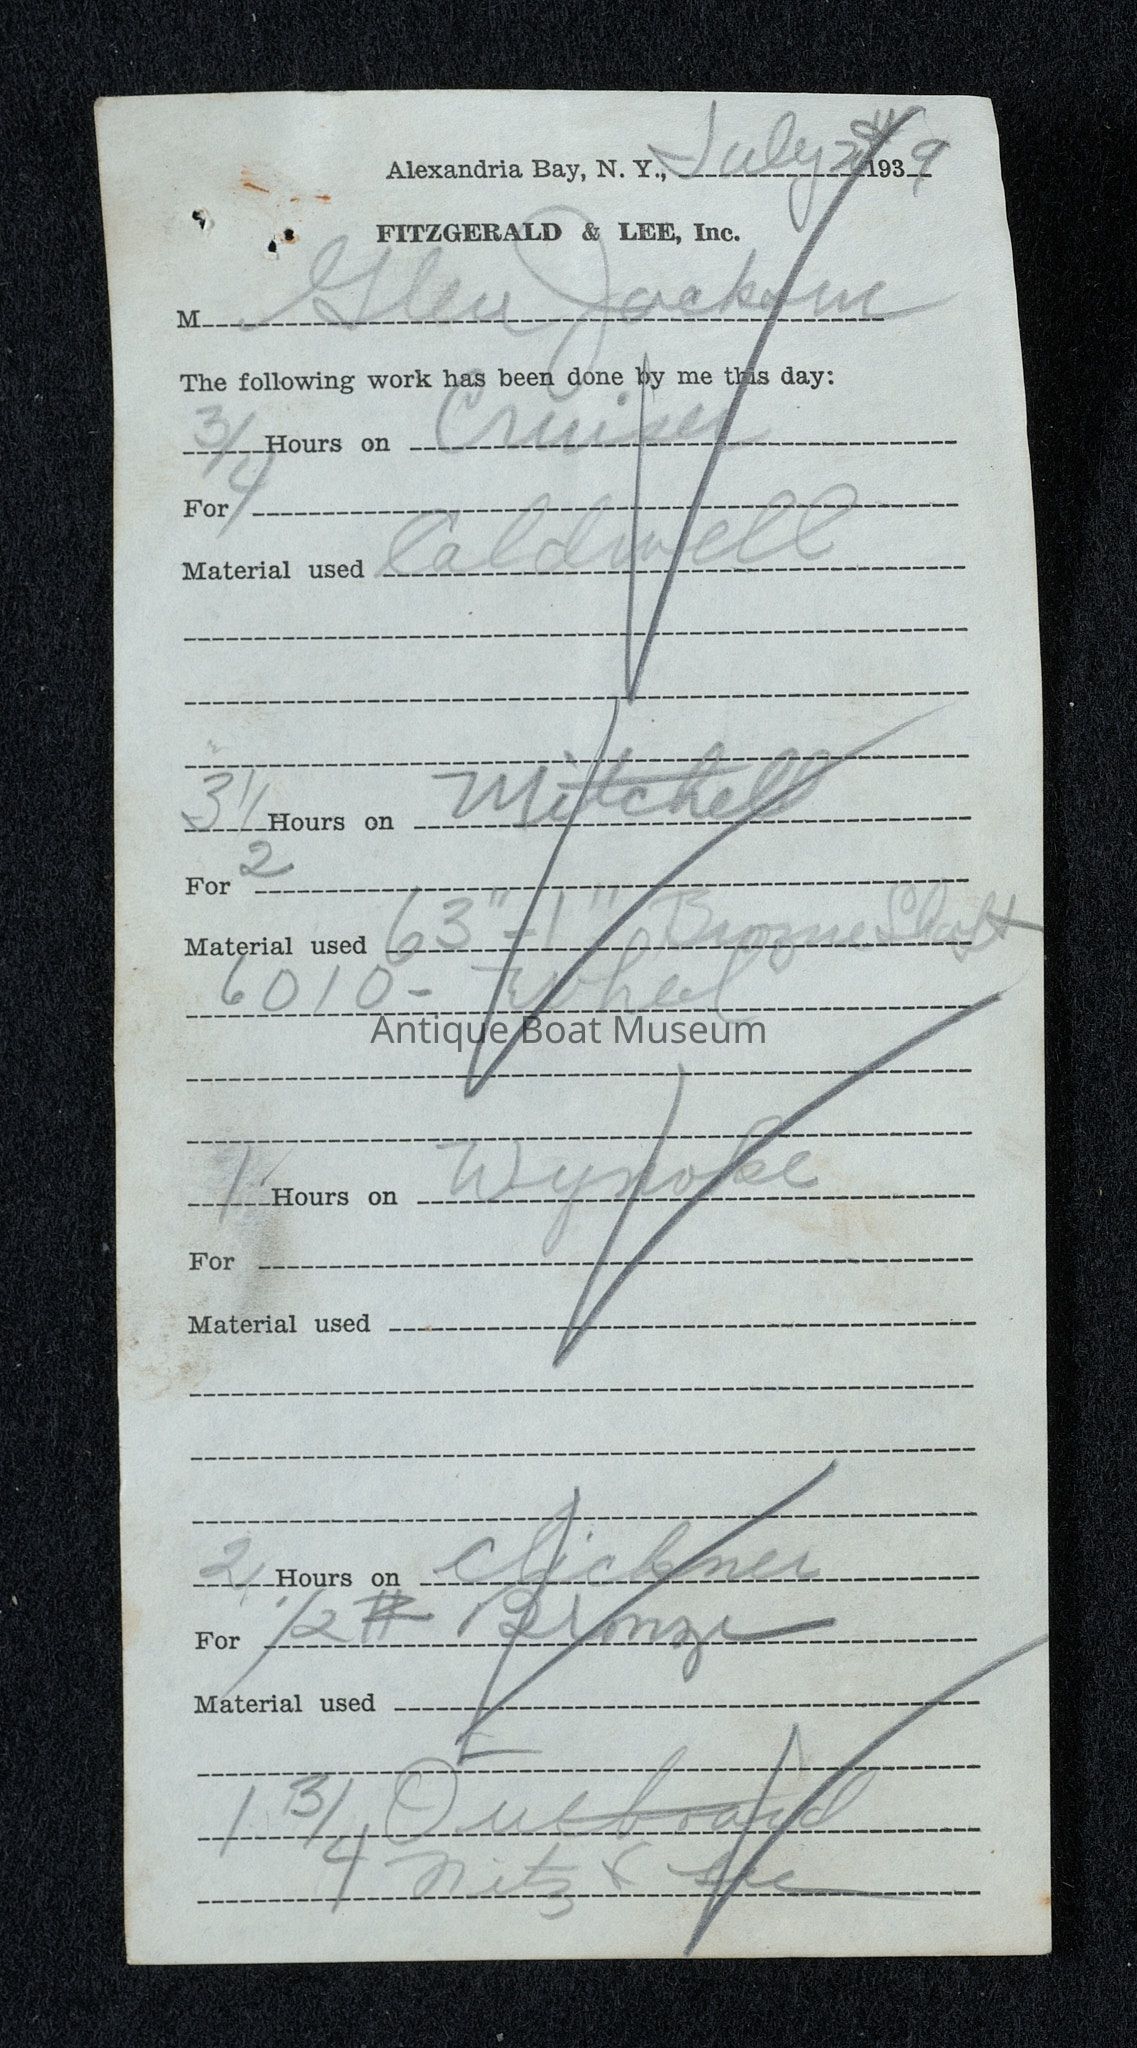 Alexandria Bay, N. Y., July 1939
FITZGERALD & LEE, Inc.
M Glen Jackson
The following work has been done by me this day:
3/4 Hours on Cruiser
For
Material used Caldwell
3 1/2 Hours on Mitchell
For
Material used 63" - 1" Bronze Shaft
6010 - Wheel
Antique Boat Museum
1 Hours on Wynoke
For
Material used
2 Hours on Clickner
For 1/2 # Bronze
Material used
1 3/4 Outboard
Nitz &